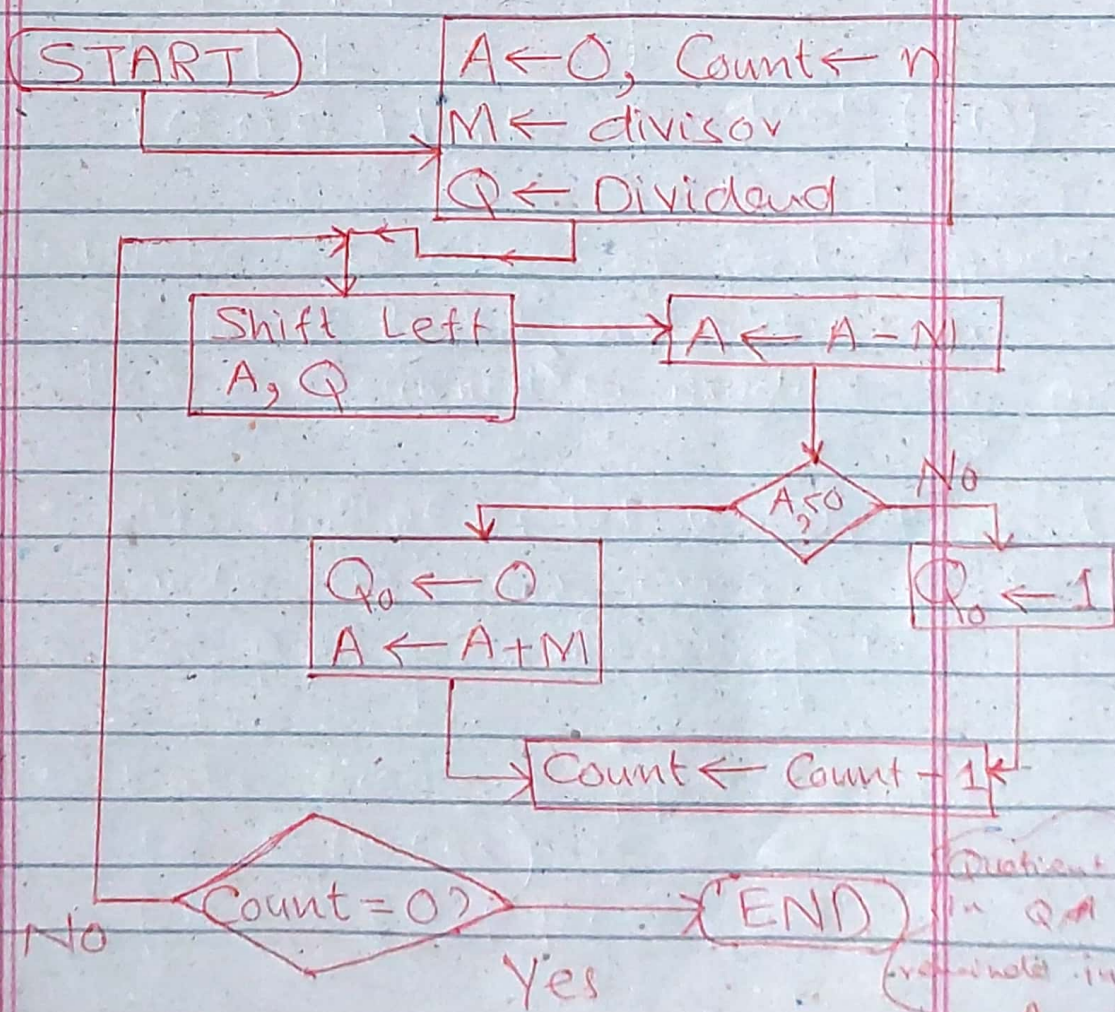 START
A ← 0, Count ← n
M ← divisor
Q ← Dividend
Shift Left
A, Q
A ← A - M
A<0
?
No
Q₀ ← 0
A ← A+M
Q₀ ← 1
Count ← Count - 1
Count = 0?
No
Yes
END
Quotient
in Q
remainder in